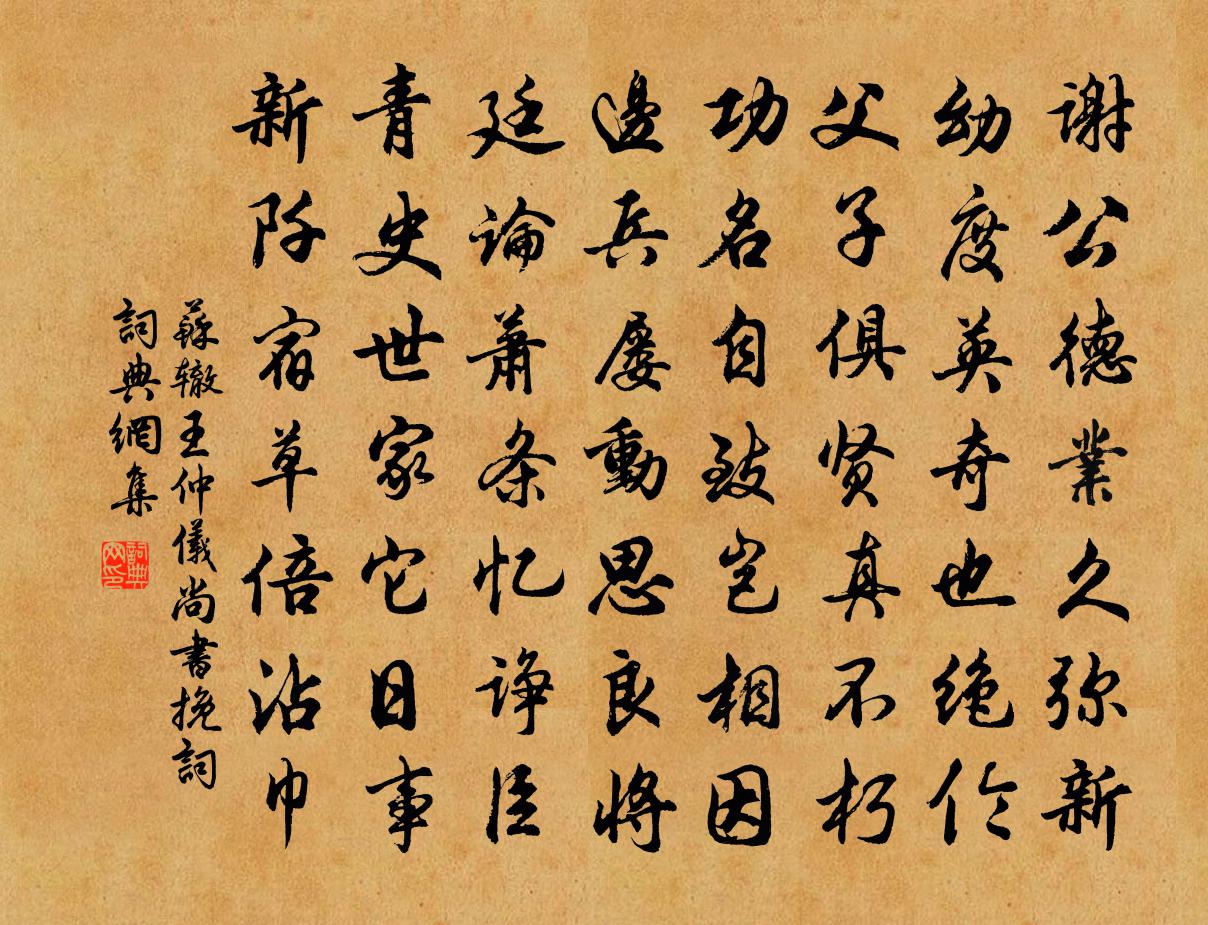 谢公德業久弥新
幼度英奇也绝伦
父子俱贤真不朽
功名自致岂相因
邊兵屡動思良將
廷論萧条忆诤臣
青史世家它日事
新阡宿草倍沾巾
蘇辙王仲儀尚書挽詞
詞典網集
詞典网印